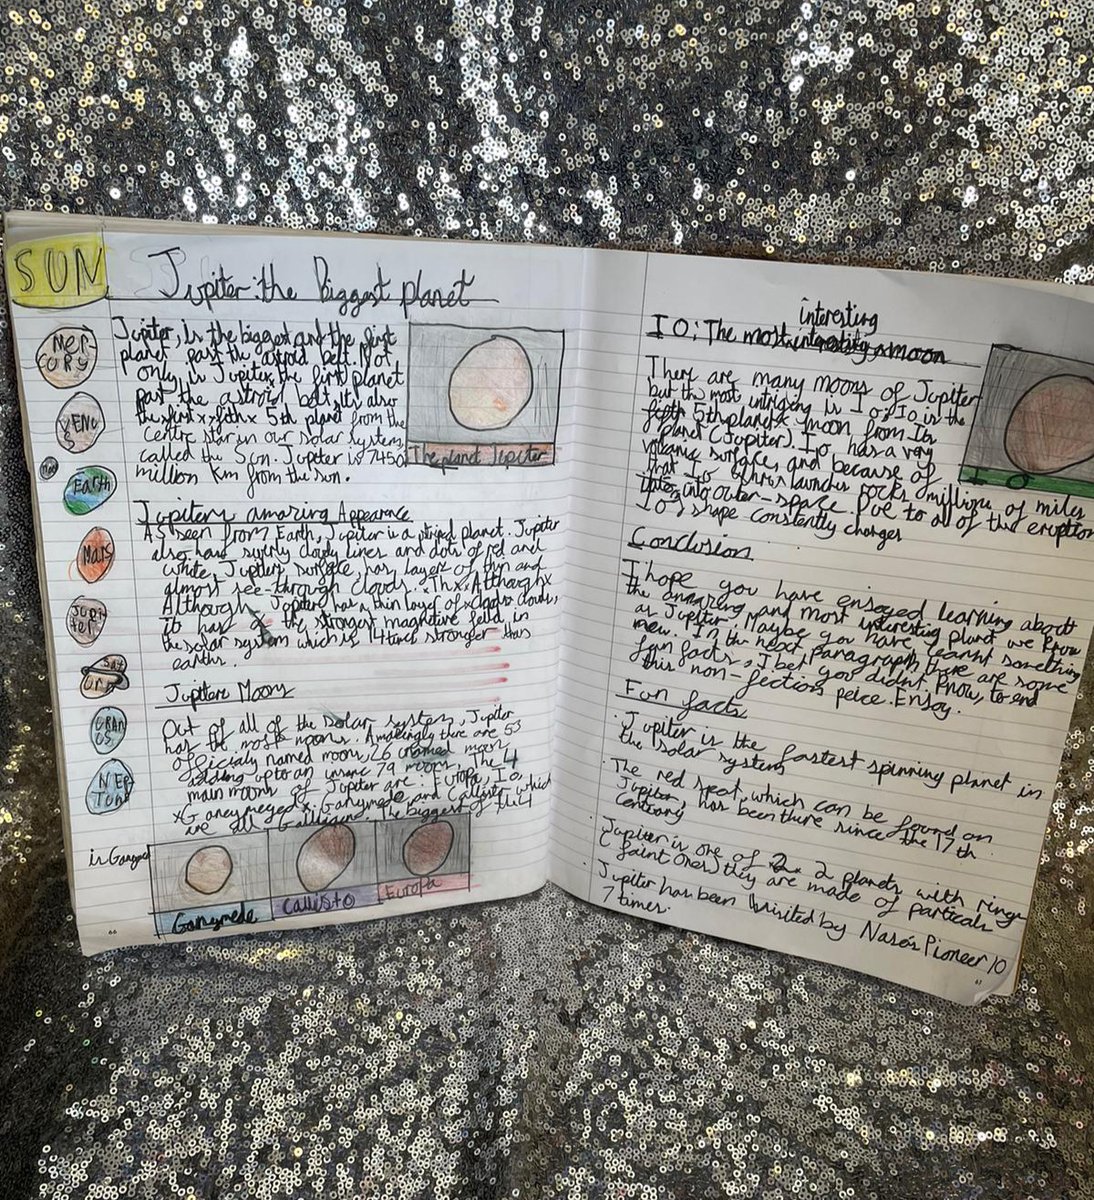 SUN
Jupiter: the Biggest planet
MER
CURY
VENU
S
Earth
Mars
JUPI
TER
SAT
URN
URAN
US
NEP
TUNE
Jupiter, is the biggest and the first
planet past the astroid belt. Not
only is Jupiter, the first planet
past the astroid belt, its also
the 5th planet from the
centre star in our solar system,
called the Sun. Jupiter is 7450
million km from the sun.
The planet Jupiter
Jupiters amazing Appearance
As seen from Earth, Jupiter is a striped planet. Jupiter
also has swirly cloudy lines and dots of red and
white. Jupiters surface, has layers of thin and
almost see-through clouds.
Although Jupiter, has a thin layer of clouds,
it has the strongest magnetic feild, in
the solar system which is 14 times stronger than
earths.
Jupiters Moons
Out of all of the solar system, Jupiter
has the most moons. Amazingly there are 53
officialy named moons, 26 moons
adding up to an insane 79 moons. The 4
main moons of Jupiter are: Europa, Io,
Ganymede and Callisto which
are all Galligean. The biggest of the 4
is Ganymede
Ganymede
Callisto
Europa
66
interesting
IO: The most moon
There are many moons of Jupiter
but the most intriguing is Io. Io is the
5th moon from its
planet (Jupiter). Io has a very
volcanic surface, and because of
that Io launches rocks millions of miles
into outer-space. Due to all of this eruption
IO's shape constantly changes
IO
Conclusion
I hope you have enjoyed learning about
the amazing and most interesting planet we know
as Jupiter. Maybe you have learnt something
new. In the next paragraph, there are some
fun facts, I bet you didn't know, to end
this non-fection peice. Enjoy.
Fun facts
· Jupiter is the fastest spinning planet in
the solar system
· The red spot, which can be found on
Jupiter, has been there since the 17th
century
· Jupiter is one of 2 planets with rings
(faint ones) they are made of particals
· Jupiter has been visited by Nasa's Pioneer 10
7 times.
67